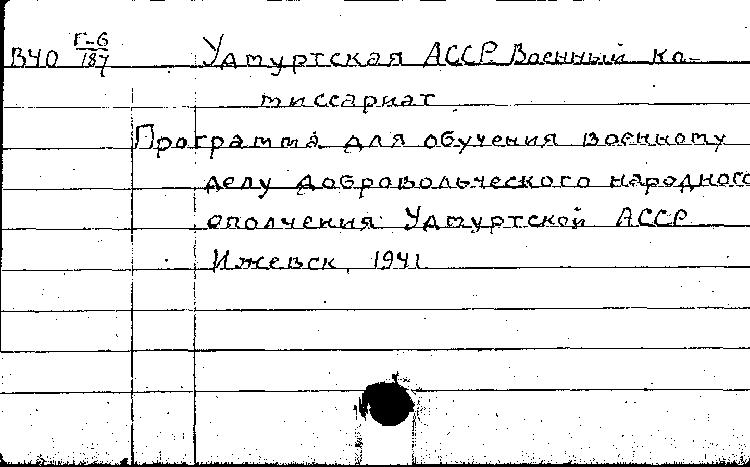 ВЧО Г-6/187 Удмуртская АССР. Военный ко-
миссариат.
Программа для обучения военному
делу добровольческого народного
ополчения Удмуртской АССР
Ижевск, 1941